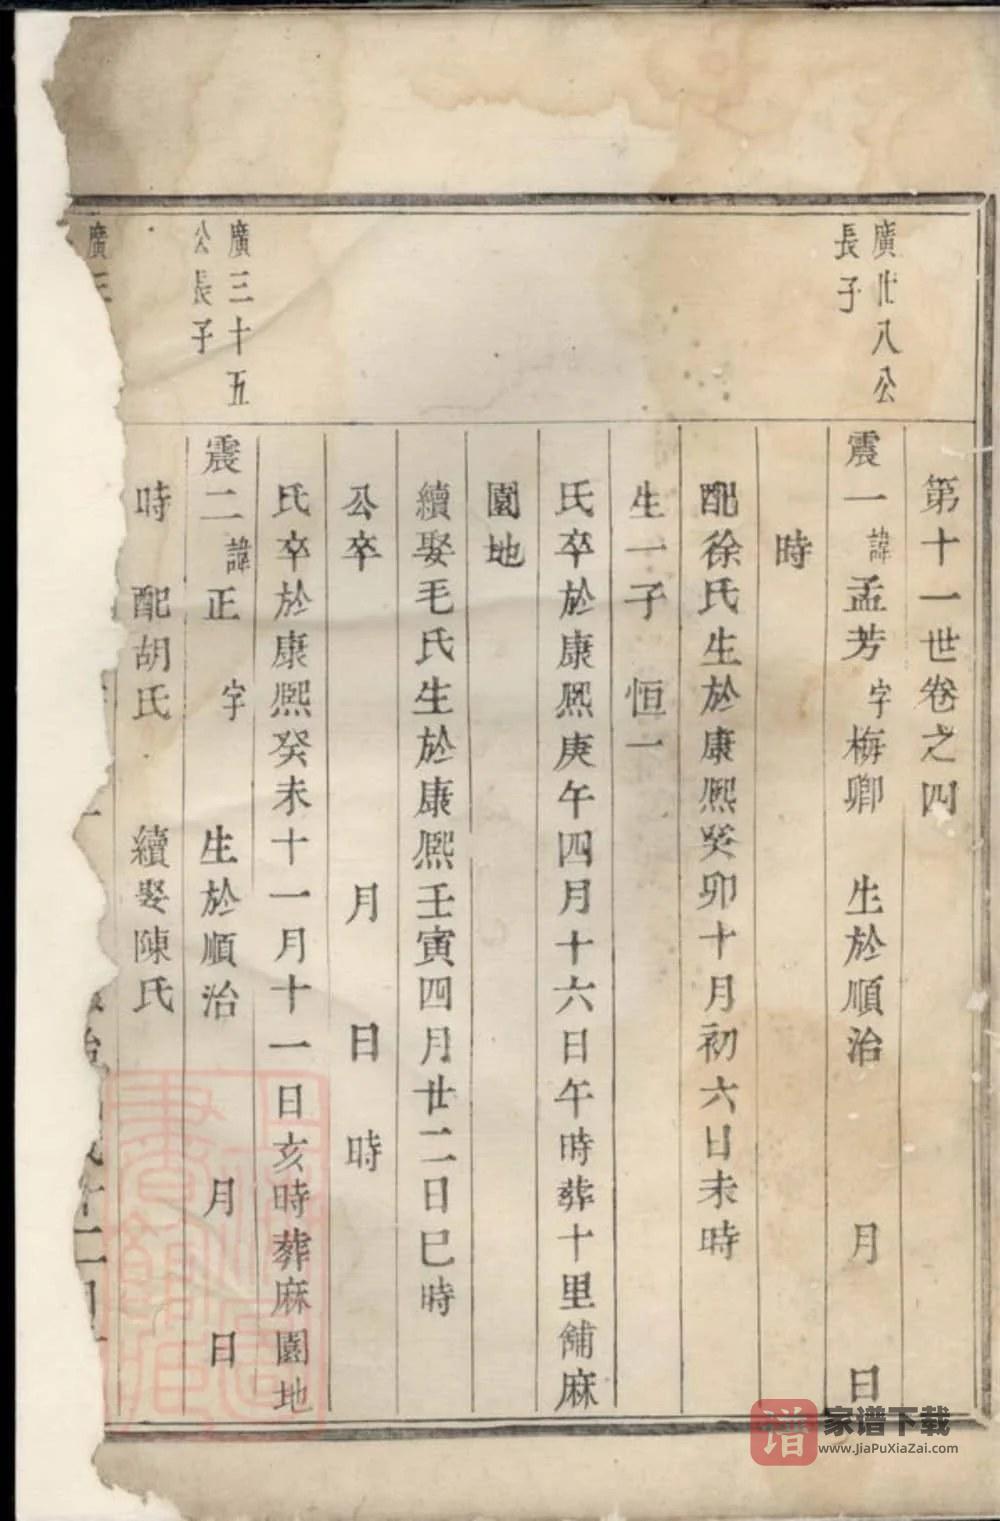 第十一世卷之四
廣廿八公
長子
震一諱孟芳字梅卿 生於順治 月 日
時
配徐氏生於康熙癸卯十月初六日未時
生一子 恒一
氏卒於康熙庚午四月十六日午時葬十里舖麻
園地
續娶毛氏生於康熙壬寅四月廿二日巳時
公卒 月 日 時
氏卒於康熙癸未十一月十一日亥時葬麻園地
廣三十五
公長子
震二諱正 字 生於順治 月 日
時 配胡氏 續娶陳氏
廣三
治 十二月
家谱下载
www.JiaPuXiaZai.com
谱